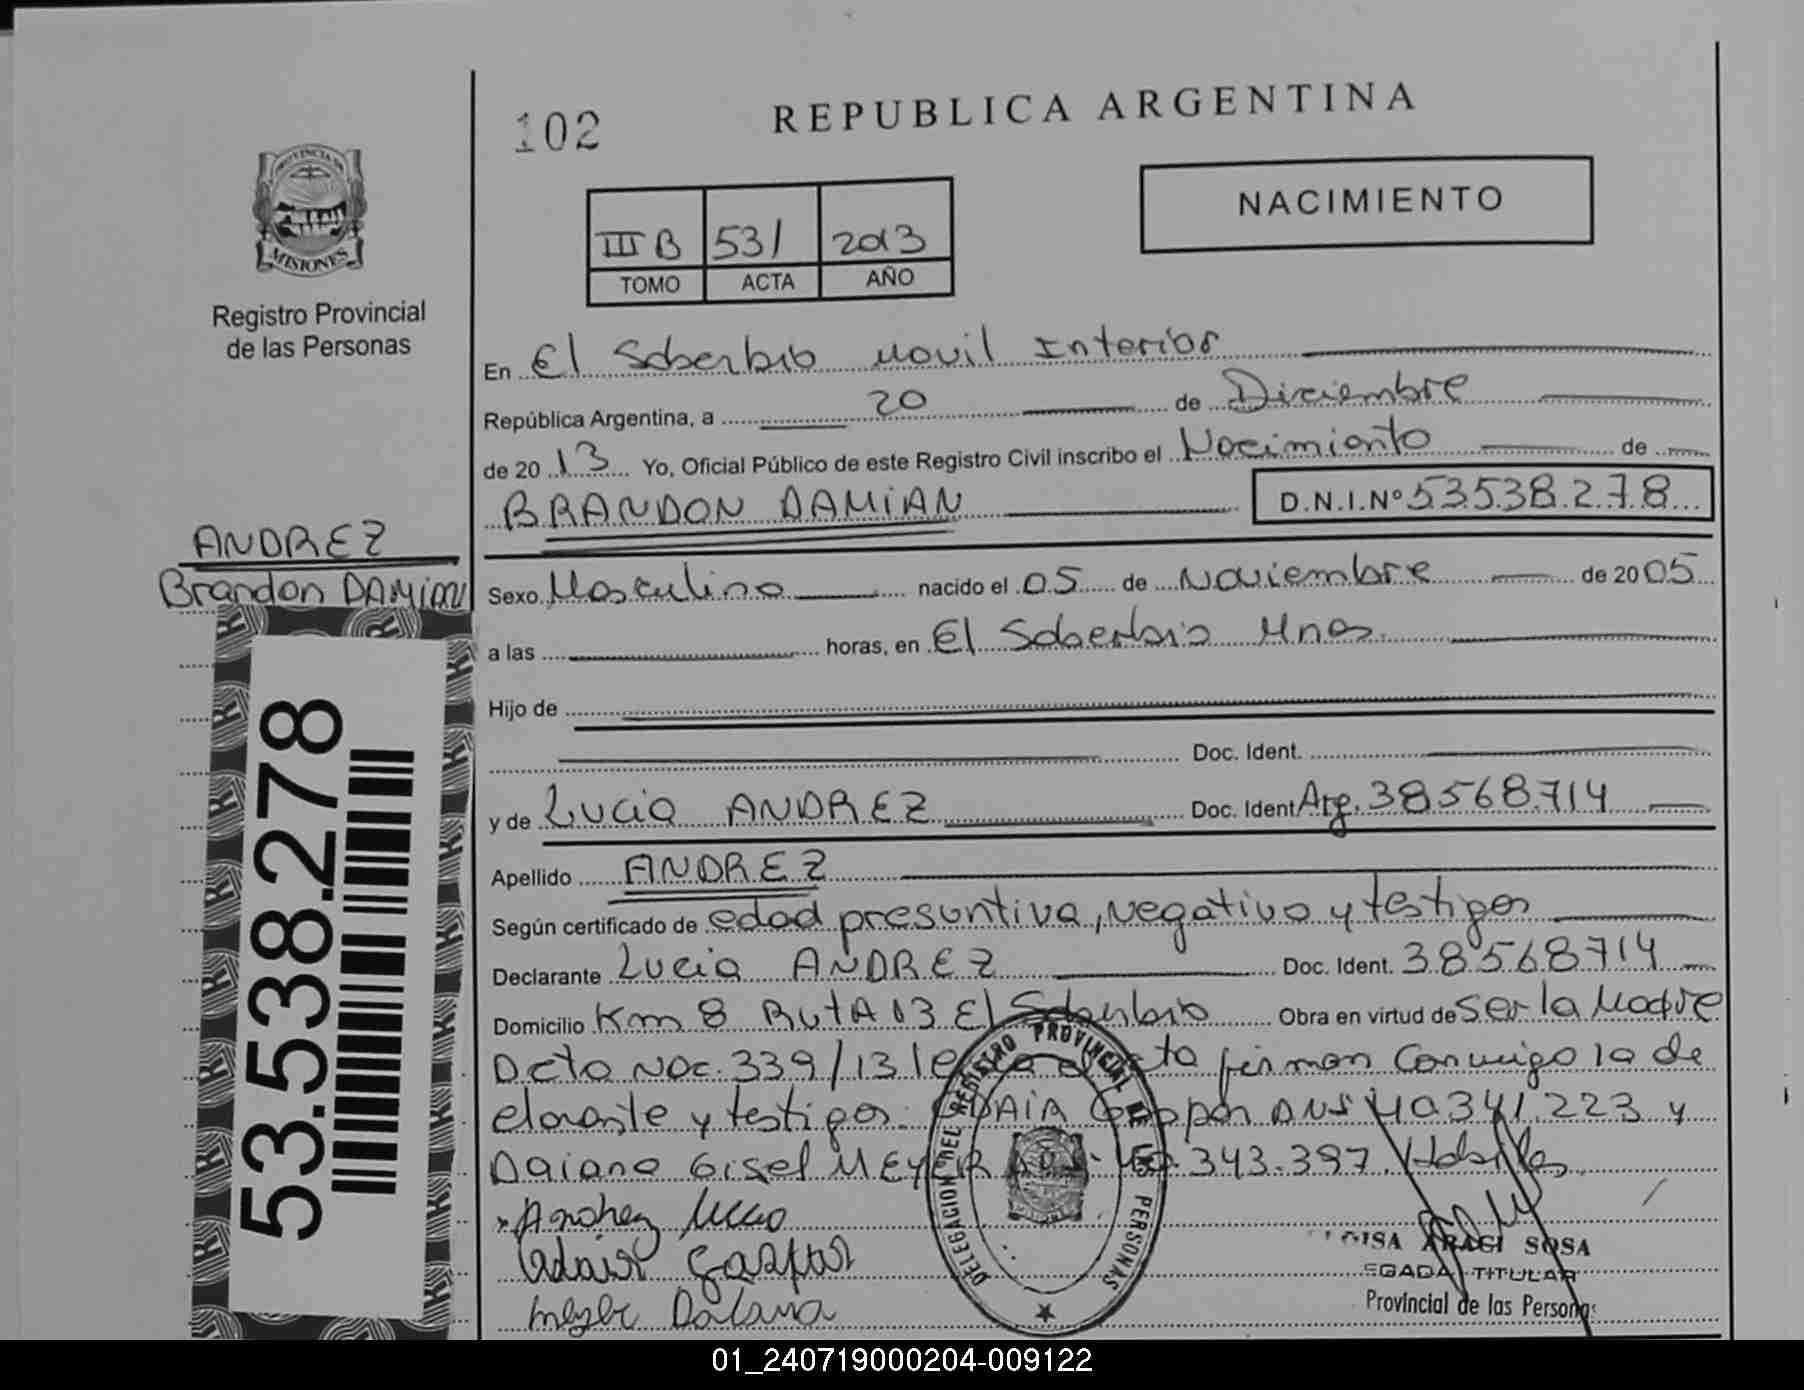 102
REPUBLICA ARGENTINA
NACIMIENTO
PROVINCIA DE
MISIONES
Registro Provincial
de las Personas
III B 531 2013
TOMO ACTA AÑO
En El Soberbio Movil Interior
República Argentina, a 20 de Diciembre
de 2013 Yo, Oficial Público de este Registro Civil inscribo el Nacimiento de
BRANDON DAMIAN D.N.I.Nº 53538.278
ANDREZ
Brandon DAMIAN
53.538.278
Sexo Masculino nacido el 05 de Noviembre de 2005
a las horas, en El Soberbio Mnes
Hijo de
Doc. Ident.
y de Lucia ANDREZ Doc. Ident Arg. 38568.714
Apellido ANDREZ
Según certificado de edad presuntiva, negativo y testigos
Declarante Lucia ANDREZ Doc. Ident. 38568714
Domicilio Km 8 RutA 13 El Soberbio Obra en virtud de ser la Madre
Dcto Nac. 339/13 acta firman conmigo la de
clarante y testigos: DNI 40.341.223 y
Daiana Gisel MEYER 343.397. Habiles
Andrez Lucia
Adair Gaspar
Meyer Daiana
DELEGACION DEL REGISTRO PROVINCIAL DE LAS PERSONAS
ARACI SOSA
TITULAR
Provincial de las Personas
01_240719000204-009122